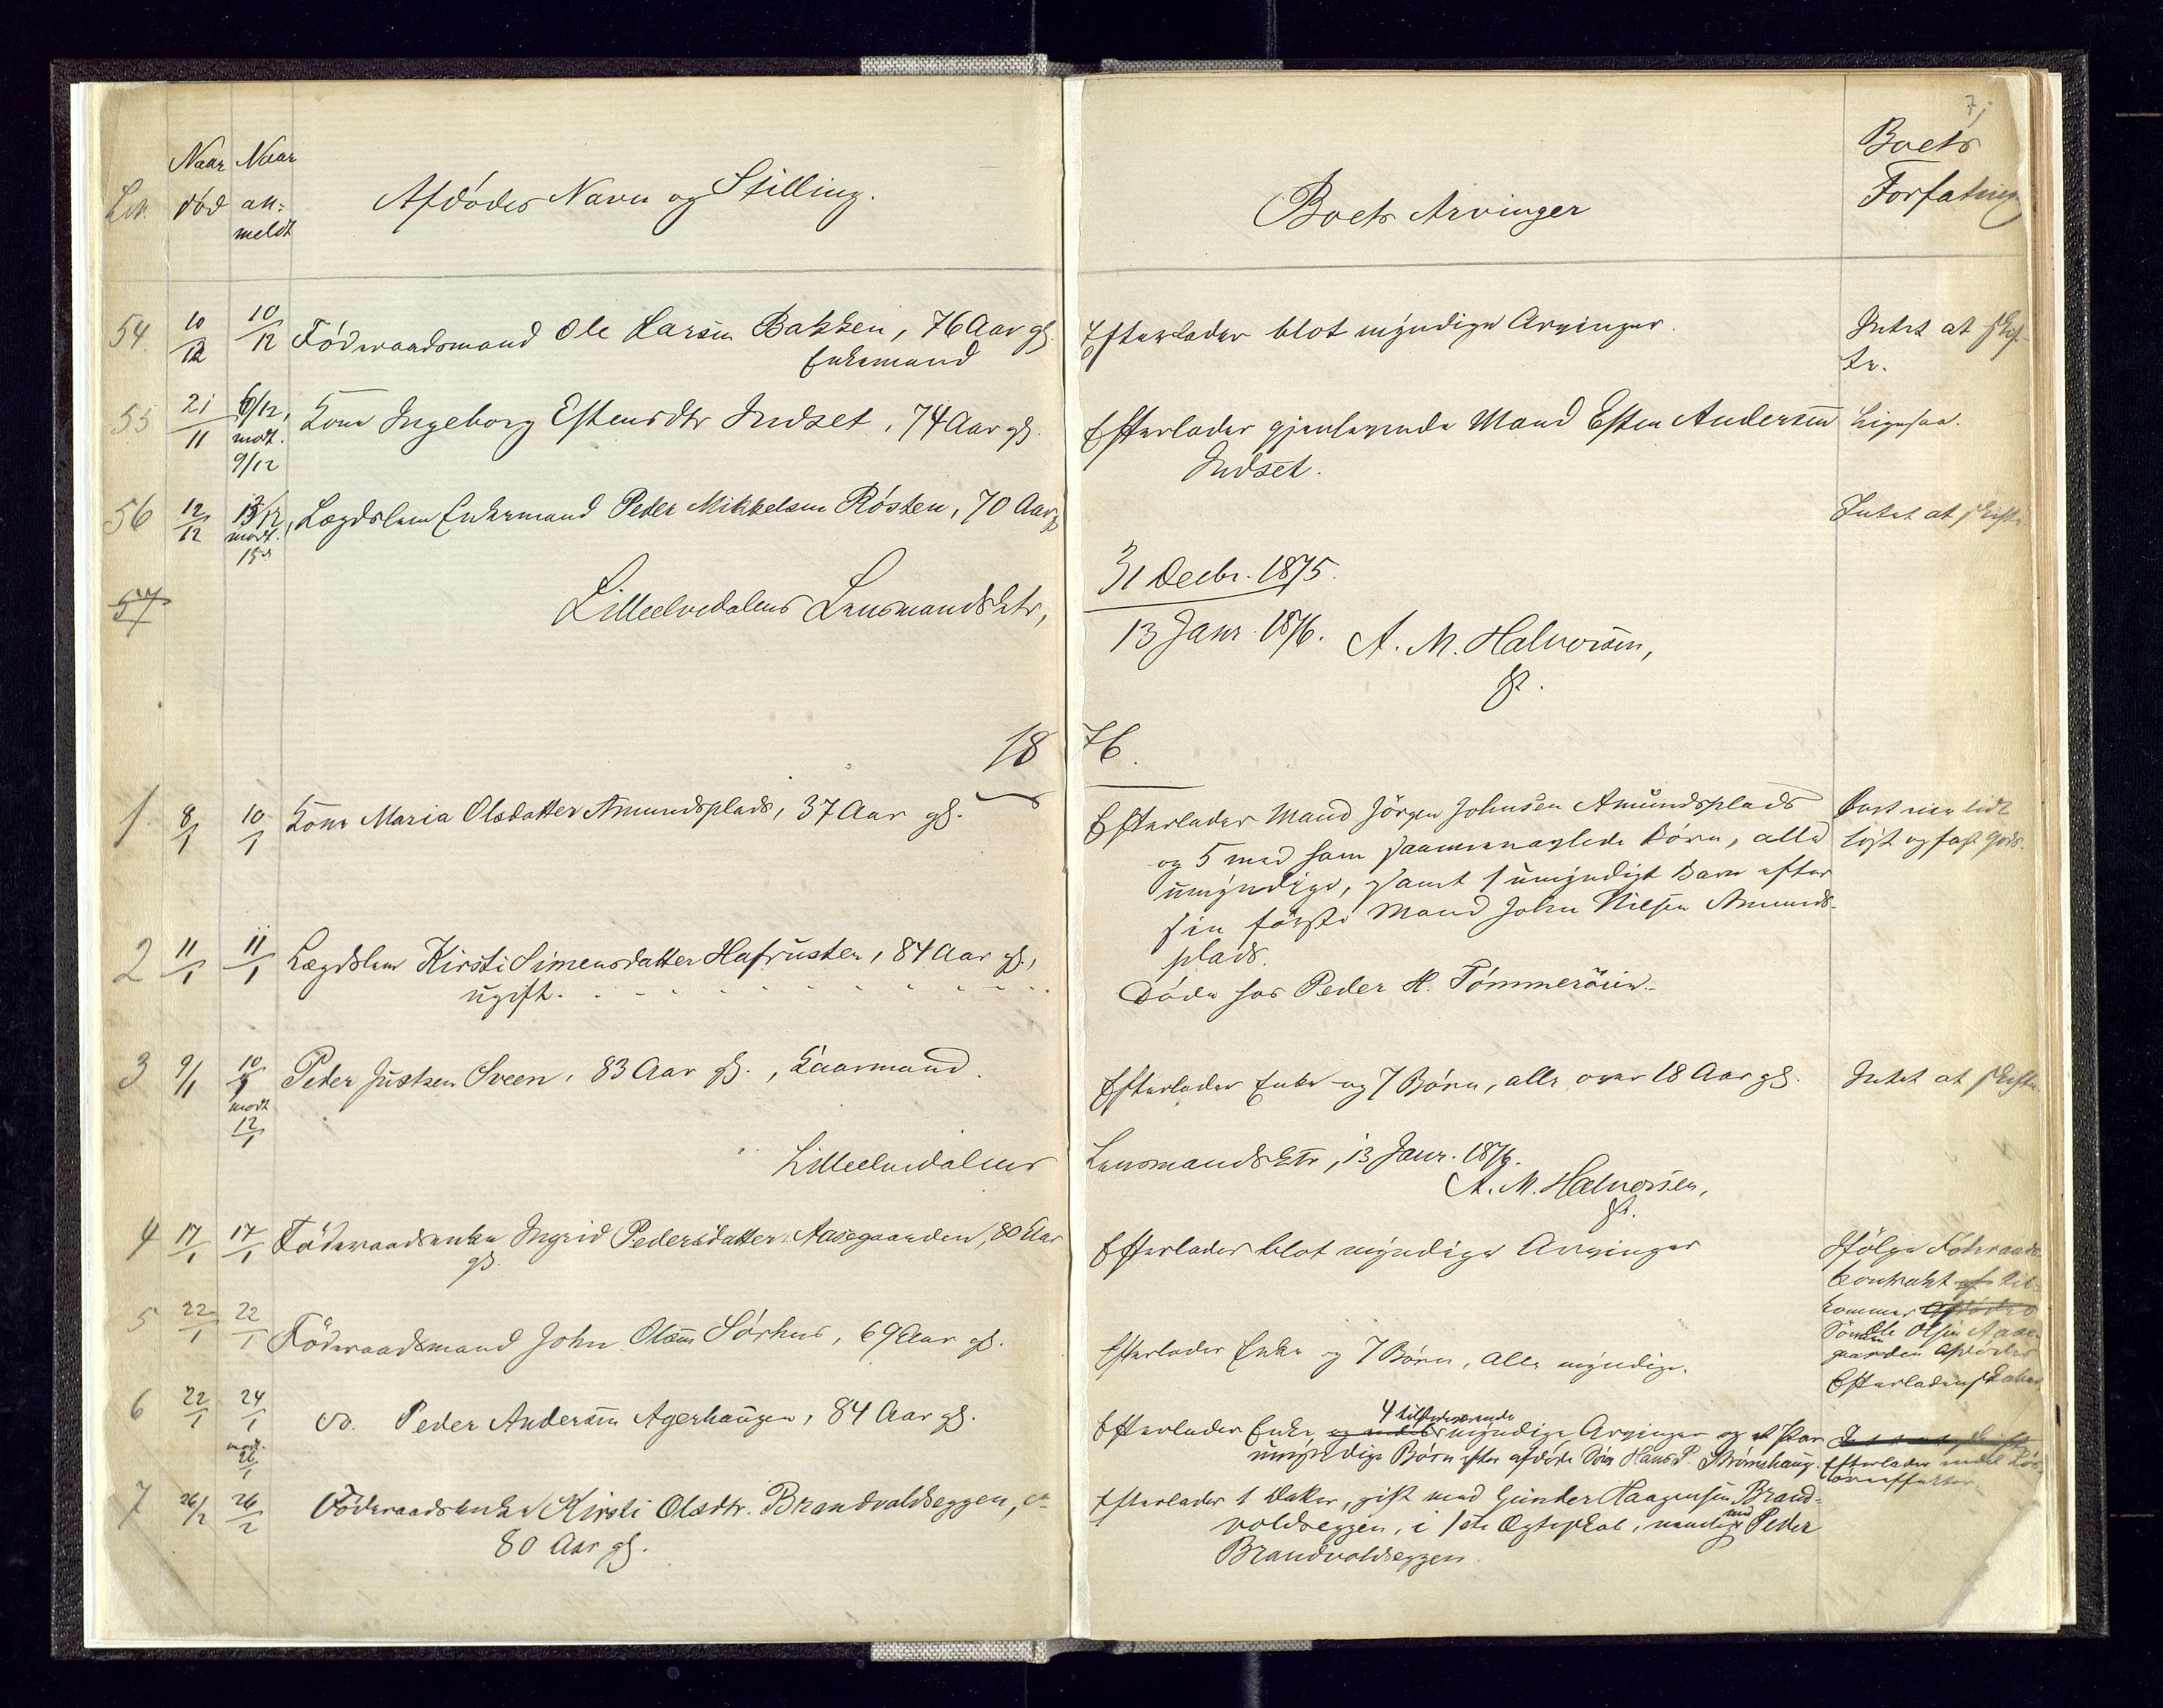 7
Naar Naar
død an=
meldt
Afdødes Navn og Stilling.
Boets Arvinger
Boets
Forfatning
54 10/12 10/12 Föderaadsmand Ole Larsen Bakken, 76 Aar gl.
Enkemand
Efterlader blot myndige Arvinger.
Intet at skif-
te.
55 21/11 6/12, modt. 9/12 Kone Ingeborg Estensdtr Indset, 74 Aar gl.
Efterlader gjenlevende Mand Esten Andersen
Indset.
Ligesaa.
56 12/12 13/12, modt. 15de Lægdslem Enkemand Peder Mikkelsen Røsten, 70 Aar gl
Intet at skifte
57
Lilleelvedalens Lensmandsktr,
31 Decbr. 1875.
13 Janr. 1876. A. M. Halvorsen,
1876.
1 8/1 10/1 Kone Maria Olsdatter Amundsplads, 37 Aar gl.
Efterlader Mand Jörgen Johnsen Amundsplads
og 5 med ham sammenavlede Børn, alle
umyndige, samt 1 umyndigt Barn efter
sin første Mand John Nilsen Amunds-
plads.
løst og fast Gods.
2 11/1 11/1 Lægdslem Kirsti Simensdatter Hafrusten, 84 Aar gl.,
ugift.
Döde hos Peder H. Tömmeröien.
3 9/1 10/1 modt 12/1 Peder Justsen Sveen, 83 Aar gl., Kaarmand.
Efterlader Enke og 7 Børn, alle over 18 Aar gl.
Intet at skifte.
Lilleelvedalens
Lensmandsktr, 13 Janr. 1876.
A. M. Halvorsen,
4 17/1 17/1 Föderaadsenke Ingrid Pedersdatter Aasegaarden, 80 Aar
gl.
Efterlader blot myndige Arvinger
Ifölge Föderaads-
Kontrakt til-
kommer Afdødes
Sönnen Ole Olsen Aase-
gaarden Afdødes
Efterladenskaber
5 22/1 22/1 Föderaadsmand John Olsen Sørhus, 69 Aar gl.
Efterlader Enke og 7 Børn, alle myndige.
6 22/1 24/1 modt. 26/1 do. Peder Andersen Agerhaugen, 84 Aar gl.
4 tilstedeværende
Efterlader Enke, myndige Arvinger og et Par
umyndige Børn efter afdøde Søn Hans P. Strømshaug.
Intet at skifte
Efterlader endel Løs-
øreeffekter.
7 26/2 26/2 Föderaadsenke Kirsti Olsdtr. Brandvoldseggen, ca
80 Aar gl.
Efterlader 1 Datter, gift med Gunder Haagensen Brand-
voldseggen, i 1ste Ægteskab, med Peder
Brandvoldseggen